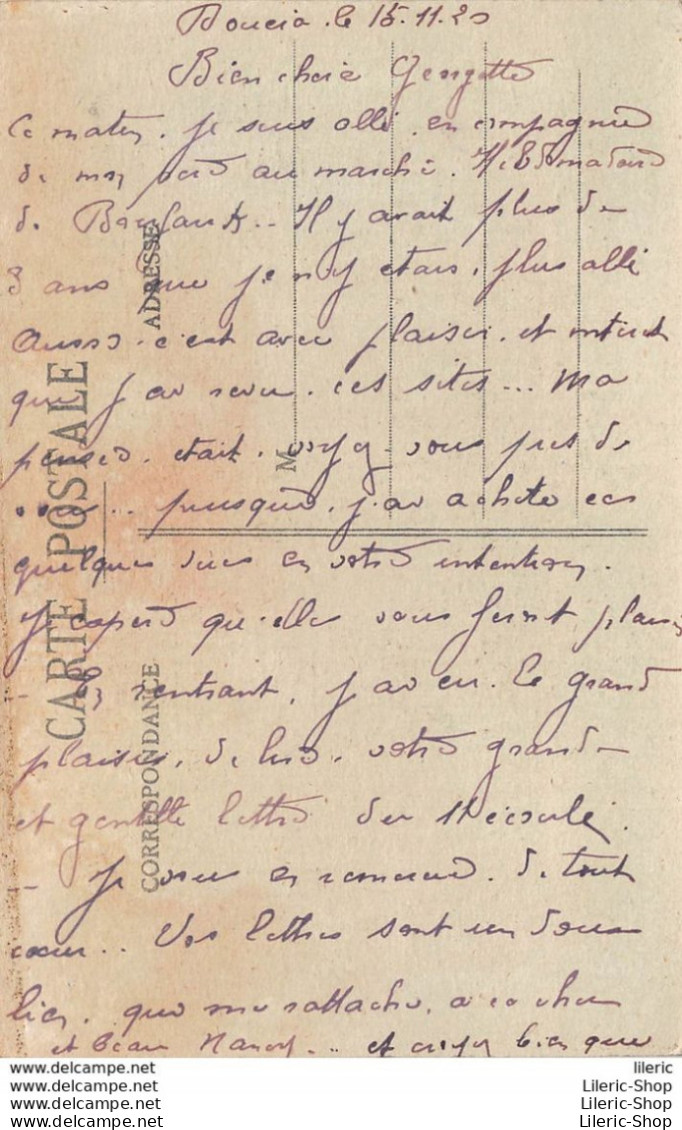 le 15.11.20
Bien chère Georgette
Ce matin. je suis allé. en compagnie
de mon au marché. Hebdomadaire
de Il y avait plus de
3 ans que je n'y étais. plus allé
Aussi. c'est avec plaisir. et intérêt
que j'ai revu. ces sites... Ma
pensée. était. croyez-vous près de
vous.. puisque. j'ai acheté ces
quelques vues en votre intention.
J'espère qu'elles vous feront plaisir
- En rentrant, j'ai eu. le grand
plaisir. de lire. votre grande
et gentille lettre du 11 écoulé.
- Je vous en remercie. de tout
cœur.. Vos lettres sont un doux
lien. qui me rattache. à ce cher
et beau Nancy... et croyez bien que
CARTE POSTALE
CORRESPONDANCE
ADRESSE
M
lileric
Lileric-Shop
Lileric-Shop
Lileric-Shop
lileric
Lileric-Shop
Lileric-Shop
Lileric-Shop